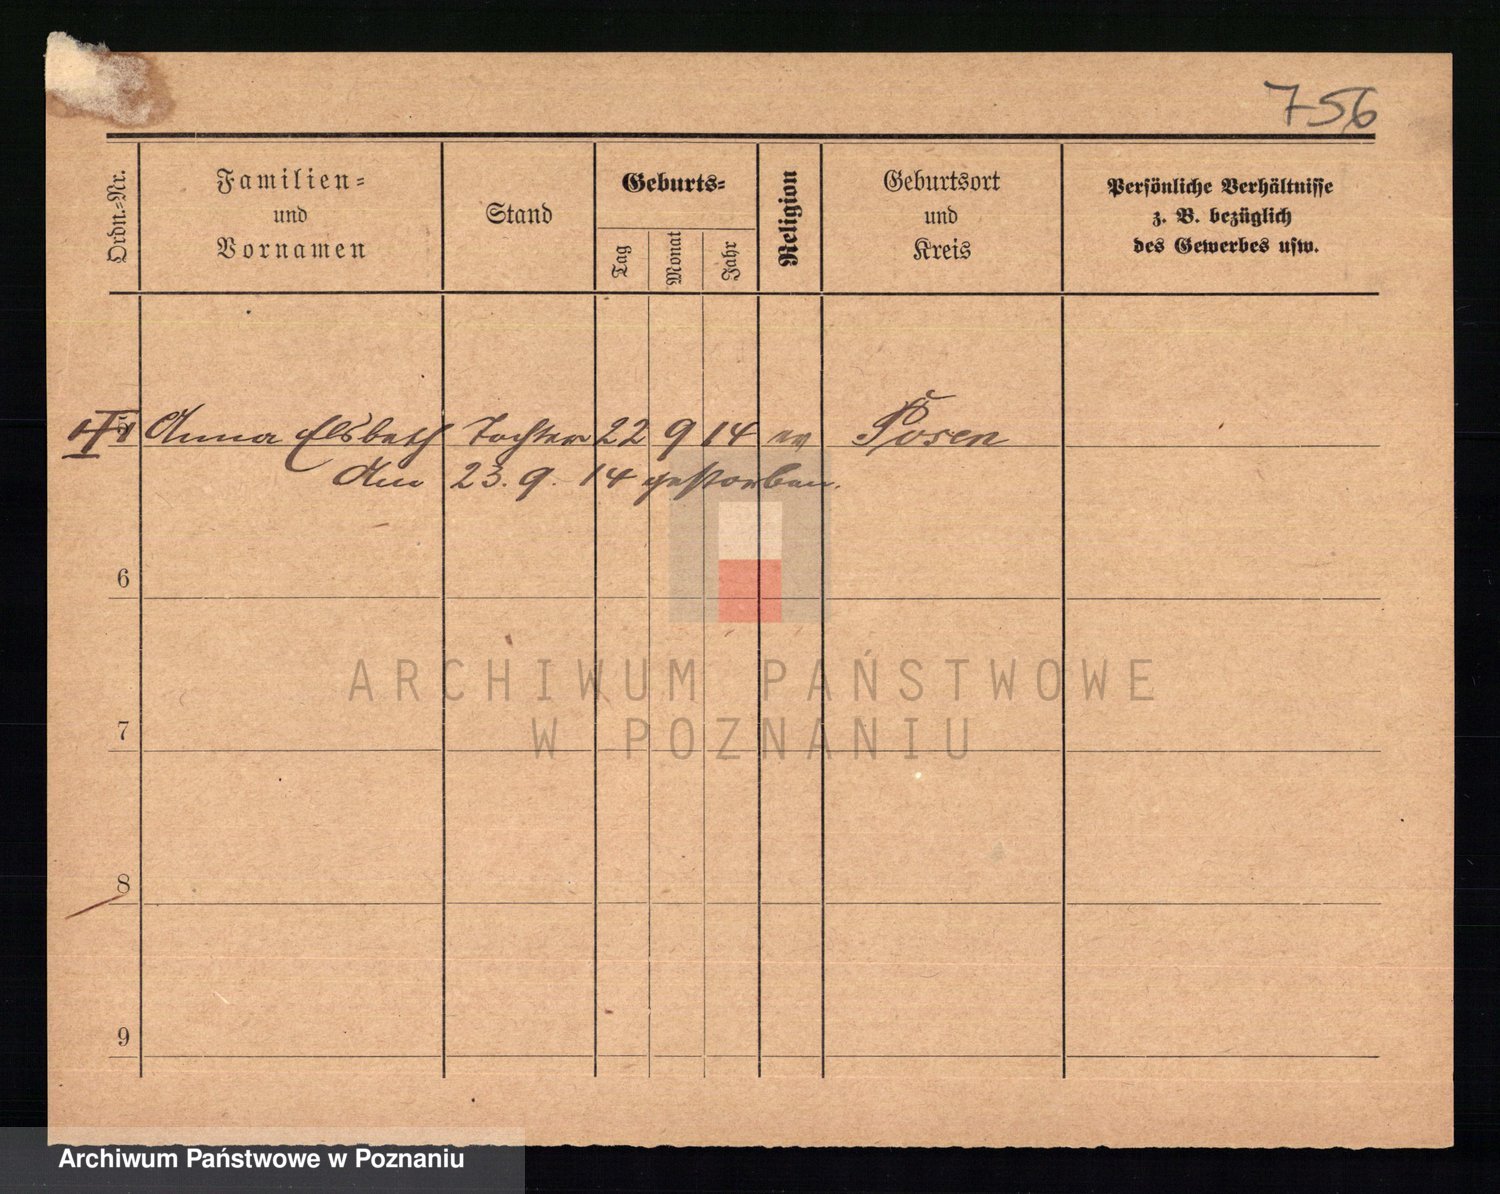 756
Ordn.-Nr.
Familien-
und
Vornamen
Stand
Geburts-
Tag
Monat
Jahr
Religion
Geburtsort
und
Kreis
Persönliche Verhältnisse
z. B. bezüglich
des Gewerbes usw.
Anna Elsbeth Tochter 22 9 14 ev Posen
Am 23. 9. 14 gestorben.
6
7
8
9
ARCHIWUM PAŃSTWOWE
W POZNANIU
Archiwum Państwowe w Poznaniu